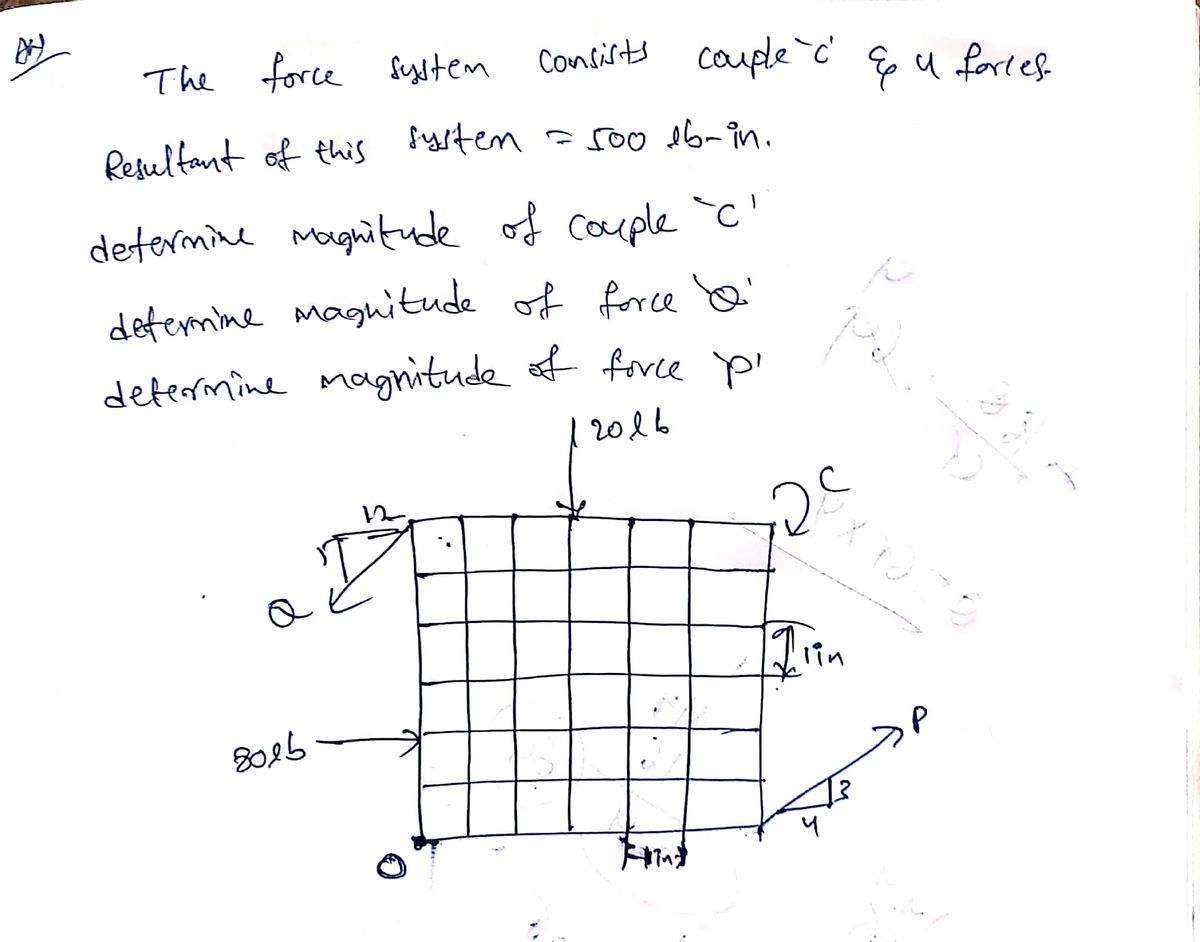 The force system consists couple `C' & 4 forces.
Resultant of this system = 500 lb-in.
determine magnitude of couple `C'
determine magnitude of force `Q'
determine magnitude of force `P'
20 lb
C
12
Q
1in
80lb
P
3
4
O
1in